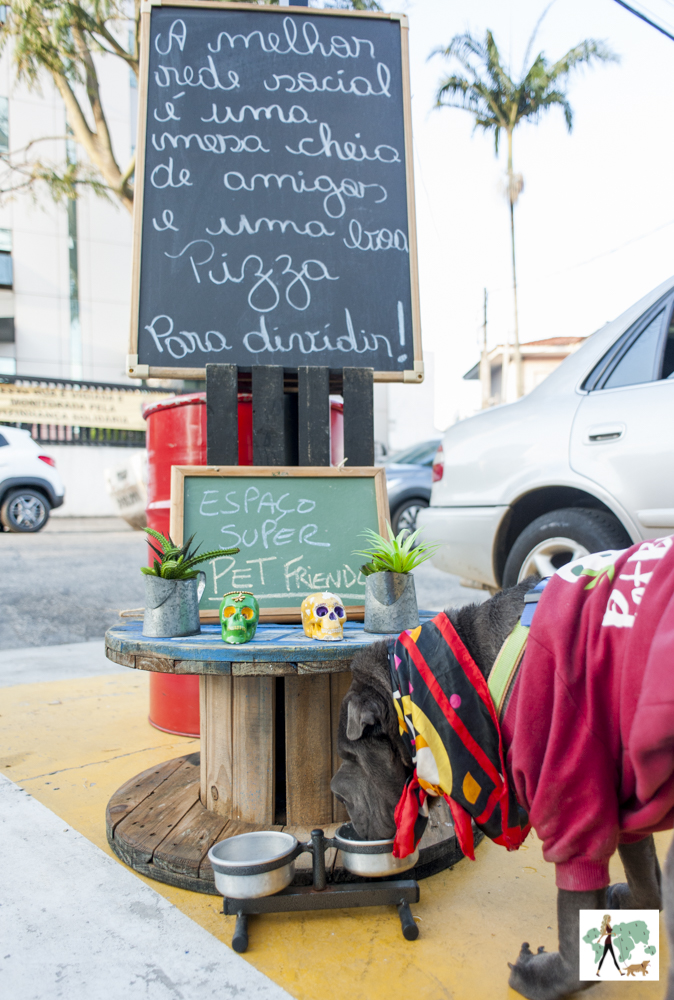 A melhor
rede social
é uma
mesa cheia
de amigos
e uma boa
Pizza
Para dividir!
ESPAÇO
SUPER
PET FRIENDLY